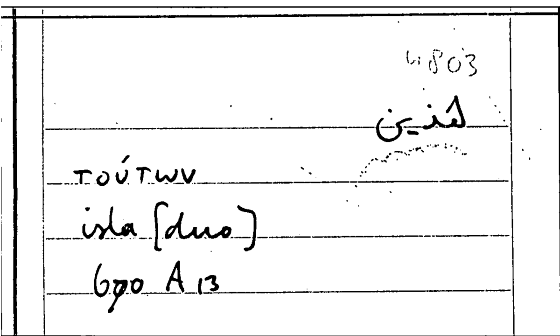 4803
هذين
τούτων
ista [duo]
A 13